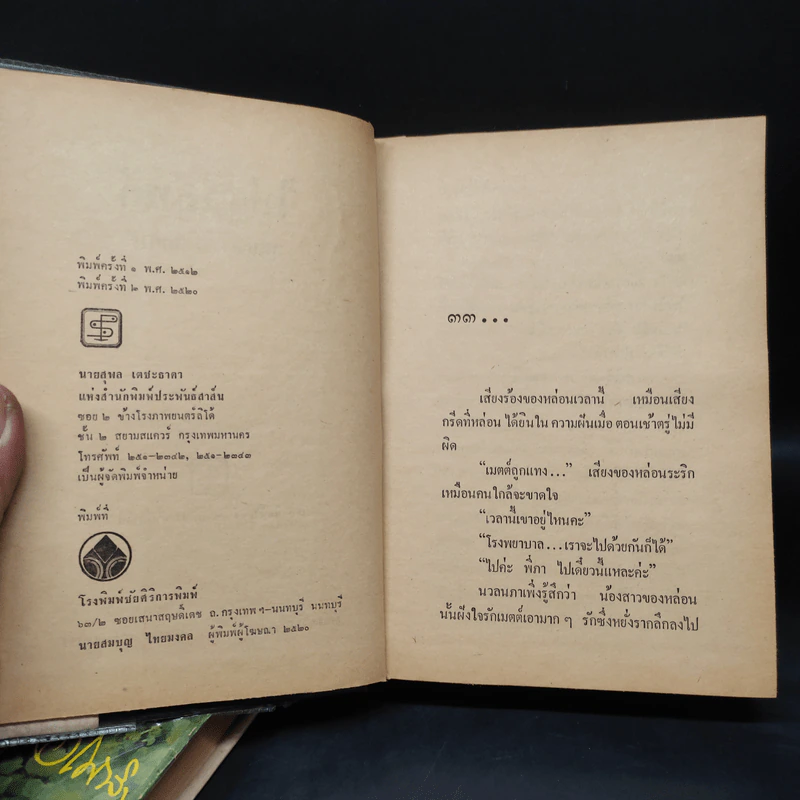 พิมพ์ครั้งที่ ๑ พ.ศ. ๒๕๑๒
พิมพ์ครั้งที่ ๒ พ.ศ. ๒๕๒๐
นายสุพล เตชะธาดา
แห่งสำนักพิมพ์ประพันธ์สาส์น
ซอย ๒ ข้างโรงภาพยนตร์ลิโด้
ชั้น ๒ สยามสแควร์ กรุงเทพมหานคร
โทรศัพท์ ๒๕๑-๒๓๔๒, ๒๕๑-๒๓๔๓
เป็นผู้จัดพิมพ์จำหน่าย
พิมพ์ที่
โรงพิมพ์ชัยศิริการพิมพ์
๖๓/๒ ซอยเสนาสฤษดิ์เดช ถ.กรุงเทพ ฯ-นนทบุรี นนทบุรี
นายสมบุญ ไทยมงคล ผู้พิมพ์ผู้โฆษณา ๒๕๒๐
๓๓...
เสียงร้องของหล่อนเวลานี้ เหมือนเสียง
กรีดที่หล่อน ได้ยินใน ความฝันเมื่อ ตอนเช้าตรู่ไม่มี
ผิด
“เมตต์ถูกแทง...” เสียงของหล่อนระริก
เหมือนคนใกล้จะขาดใจ
“เวลานี้เขาอยู่ไหนคะ”
“โรงพยาบาล...เราจะไปด้วยกันก็ได้”
“ไปค่ะ พี่ภา ไปเดี๋ยวนี้แหละค่ะ”
นวลนภาเพิ่งรู้สึกว่า น้องสาวของหล่อน
นั้นฝังใจรักเมตต์เอามาก ๆ รักซึ่งหยั่งรากลึกลงไป